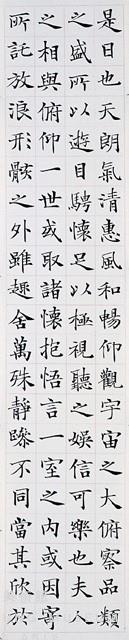 是日也天朗氣清惠風和暢仰觀宇宙之大俯察品類
之盛所以遊目騁懷足以極視聽之娛信可樂也夫人
之相與俯仰一世或取諸懷抱悟言一室之內或因寄
所託放浪形骸之外雖趣舍萬殊靜躁不同當其欣於